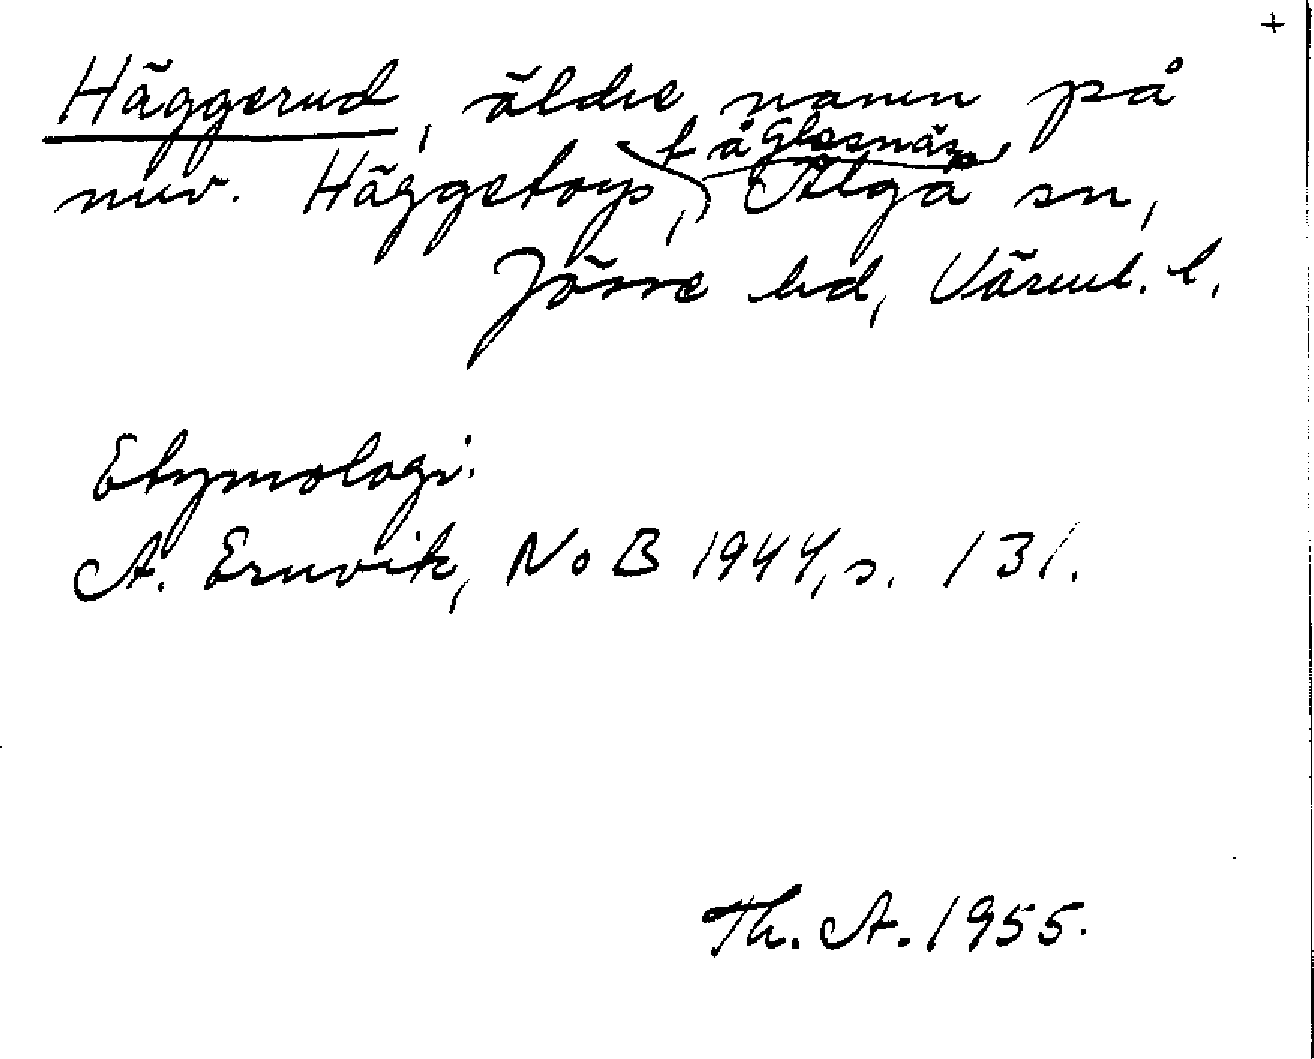 +
Häggerud, äldre namn på
t å Glasnäs
nuv. Häggetorp, Älgå sn,
Jösse hd, Värml. l.
Etymologi.
A. Ernvik, NoB 1944, s. 131.
Th. A. 1955.